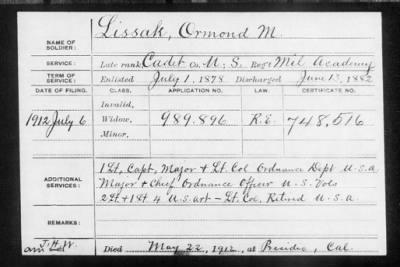 NAME OF SOLDIER: Lissak, Ormond M.
SERVICE: Late rank, Cadet Co. U.S. Reg't Mil Academy
TERM OF SERVICE: Enlisted July 1, 1878 Discharged June 13, 1882
DATE OF FILING. CLASS. APPLICATION NO. LAW. CERTIFICATE NO.
Invalid,
1912 July 6 Widow, 989.896 R.E. 748,516
Minor,
ADDITIONAL SERVICES: 1 Lt, Capt, Major & Lt. Col Ordnance Dept U.S.a
Major & Chief Ordnance Officer U.S. Vols
2 Lt & 1st 4 U.S. art - Lt. Col. Retired U.S.a
REMARKS:
J.H.W.
Died May 22, 1912, at Presidio, Cal.